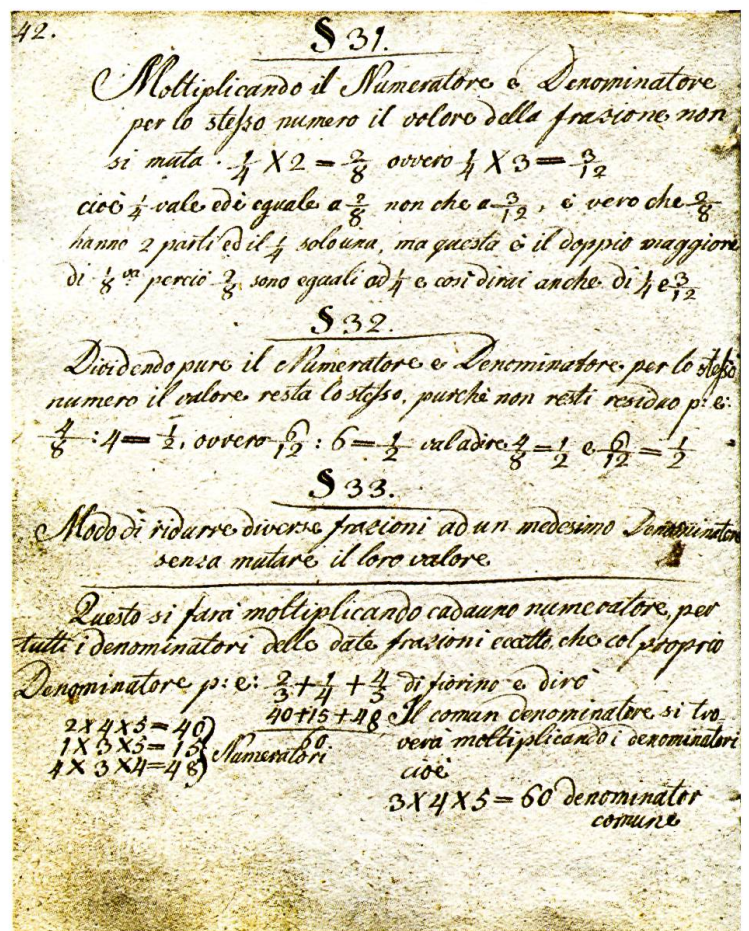 42.
§ 31.
Moltiplicando il Numeratore e Denominatore
per lo stesso numero il valore della frazione non
si muta. 1/4 X 2 = 2/8 ovvero 1/4 X 3 = 3/12
cioè 1/4 vale ed è eguale a 2/8 non che a 3/12, è vero che 2/8
hanno 2 parti ed il 1/4 solo una, ma questa è il doppio maggiore
di 1/8 va perciò 2/8 sono eguali ad 1/4 e così dirai anche di 1/4 e 3/12
§ 32.
Dividendo pure il Numeratore e Denominatore per lo stesso
numero il valore resta lo stesso, purchè non resti residuo p: e:
4/8 : 4 = 1/2, ovvero 6/12 : 6 = 1/2 val a dire 4/8 = 1/2 e 6/12 = 1/2
§ 33.
Modo di ridurre diverse frazioni ad un medesimo Denominatore
senza mutare il loro valore
Questo si farà moltiplicando cadauno numeratore per
tutti i denominatori delle date frazioni ecetto, che col proprio
Denominatore p: e: 2/3 + 1/4 + 4/5 di fiorino e dirò
40 + 15 + 48
60
2 X 4 X 5 = 40)
1 X 3 X 5 = 15) Numeratori
4 X 3 X 4 = 48)
Il comun denominatore si tro-
verà moltiplicando i denominatori
cioè
3 X 4 X 5 = 60 denominator
comune